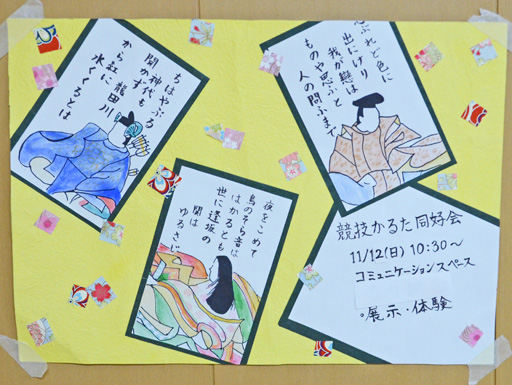 ちはやぶる
神代も
聞かず
龍田川
から紅に
水くくるとは
忍ぶれど色に
出にけり
我が戀は
ものや思ふと
人の問ふまで
夜をこめて
鳥のそら音は
はかるとも
世に逢坂の
関は
ゆるさじ
競技かるた同好会
11/12(日) 10:30～
コミュニケーションスペース
。展示・体験